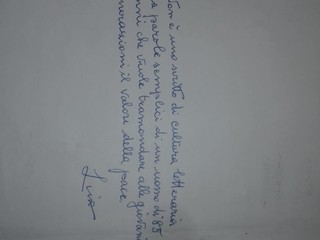 Non è uno scritto di cultura letteraria
parole semplici di un uomo di 85
anni che vuole tramandare alle giovani
generazioni il valore della pace